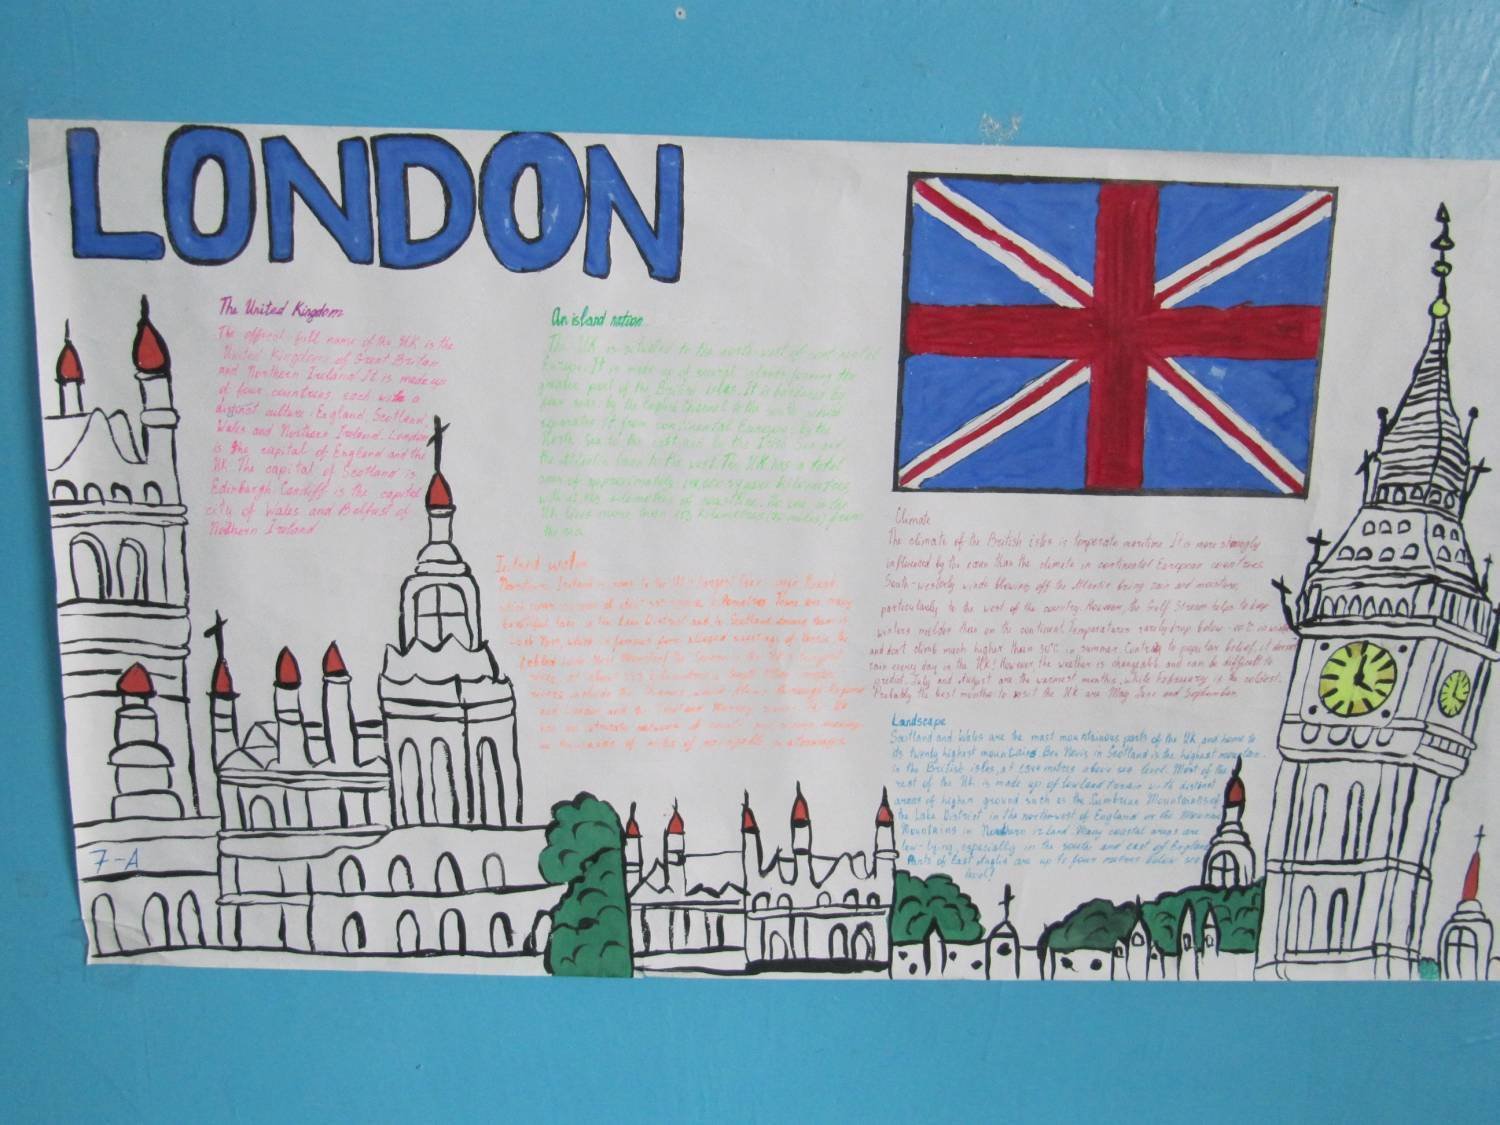 LONDON
The United Kingdom
The official full name of the UK is the
United Kingdoms of Great Britain
and Northern Ireland It is made up
of four countries each with a
distinct culture: England, Scotland,
Wales and Northern Ireland. London
is the capital of England and the
UK. The capital of Scotland is
Edinburgh. Cardiff is the capital
city of Wales and Belfast of
Northern Ireland
An island nation
The UK is situated to the north-west of continental
Europe. It is made up of several islands forming the
greater part of the British Isles. It is bordered by
four seas: by the English Channel to the south which
separates it from continental Europe; by the
North Sea to the east; and by the Irish Sea and
the Atlantic to the west. The UK has a total
area of approximately square kilometres,
with kilometres of coastline. No one in the
UK lives more than kilometres miles) from
the sea.
Inland water
Northern Ireland is home to the UK's largest lake
are many
beautiful lakes in the Lake District and in Scotland among them is
Loch Ness, which is famous for alleged sightings of Nessie, the
Loch Ness Monster. The Severn is the UK's longest
river, at about
rivers include the Thames, which flows through England
and London and
network of
of miles of navigable waterways
Climate
The climate of the British isles is temperate maritime. It is more strongly
influenced by the ocean than the climate in continental European countries
South-westerly winds blowing off the Atlantic bring rain and moisture,
particularly to the west of the country. However, the Gulf Stream helps to keep
winters milder than on the continent. Temperatures rarely drop below in winter
and don't climb much higher than 30°C in summer. Contraty to popular belief, it doesn't
rain every day in the UK! However, the weather is changeable and can be difficult to
predict. July and August are the warmest months, while February is the coldest.
Probably the best months to visit the UK are May, June and September
Landscape
Scotland and Wales are the most mountainous parts of the UK and home to
its twenty highest mountains. Ben Nevis in Scotland is the highest mountain
in the British isles, at 1344 metres above sea level. Most of the
rest of the UK is made up of lowland terrain with distinct
areas of higher ground such as the Cumbrian Mountains of
the Lake District in the northwest of England or the Mourne
Mountains in Northern ireland. Many coastal areas are
low-lying, especially in the south and east of England
Parts of East Anglia are up to four metres below sea
level!
7-A